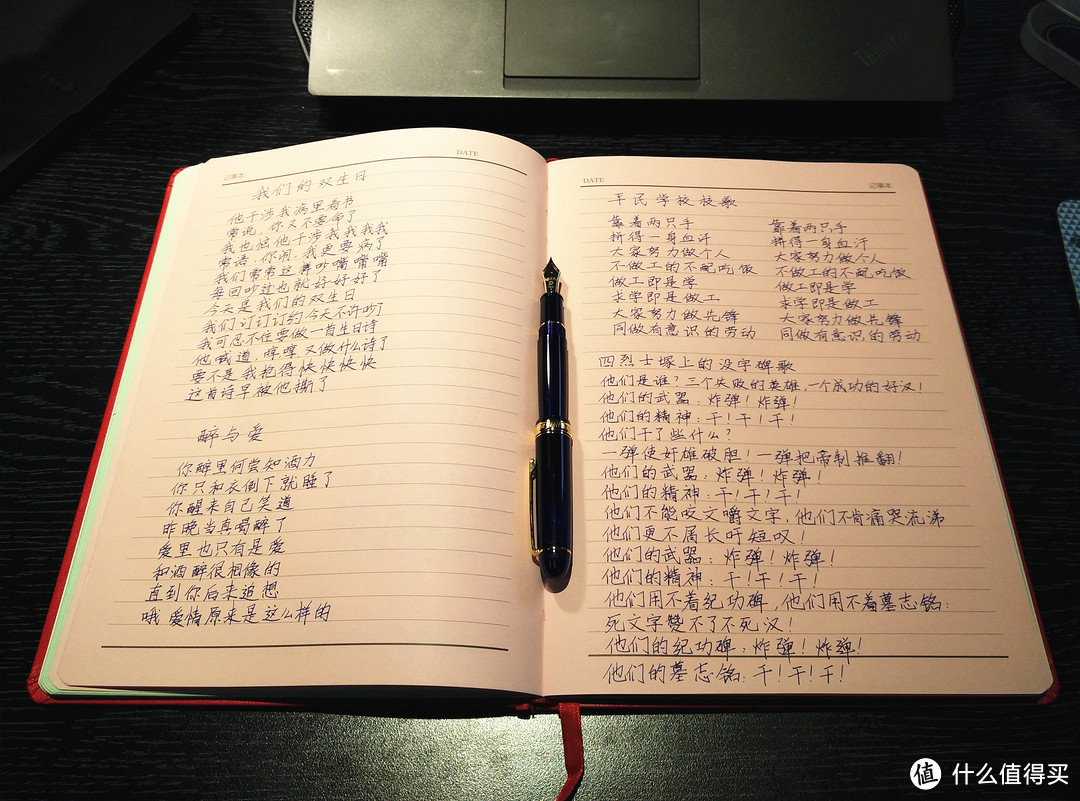 记事本 DATE
我们的双生日
他干涉我病里看书
常说，你又不要命了
我也恼他干涉我我我我
常语，你闹，我更要病了
我们常常这吵嘴嘴嘴
每回吵过也就好好好了
今天是我们的双生日
我们订订订约今天不许吵了
我可忍不住要做一首生日诗
他喊道，哼哼又做什么诗了
要不是我抢得快快快快
这首诗早被他撕了
醉与爱
你醉里何尝知酒力
你只和衣倒下就睡了
你醒来自己笑道
昨晚当真喝醉了
爱里也只有是爱
和酒醉很相像的
直到你后来追想
哦 爱情原来是这么样的
DATE 记事本
平民学校校歌
靠着两只手 靠着两只手
拼得一身血汗 拼得一身血汗
大家努力做个人 大家努力做个人
不做工的不配吃饭 不做工的不配吃饭
做工即是学 做工即是学
求学即是做工 求学即是做工
大家努力做先锋 大家努力做先锋
同做有意识的劳动 同做有意识的劳动
四烈士塚上的没字碑歌
他们是谁？三个失败的英雄，一个成功的好汉！
他们的武器：炸弹！炸弹！
他们的精神：干！干！干！
他们干了些什么？
一弹使奸雄破胆！一弹把帝制推翻！
他们的武器：炸弹！炸弹！
他们的精神：干！干！干！
他们不能咬文嚼文字，他们不肯痛哭流涕
他们更不屑长吁短叹！
他们的武器：炸弹！炸弹！
他们的精神：干！干！干！
他们用不着纪功碑，他们用不着墓志铭：
死文字赞不了不死汉！
他们的纪功碑：炸弹！炸弹！
他们的墓志铭：干！干！干！
值 什么值得买